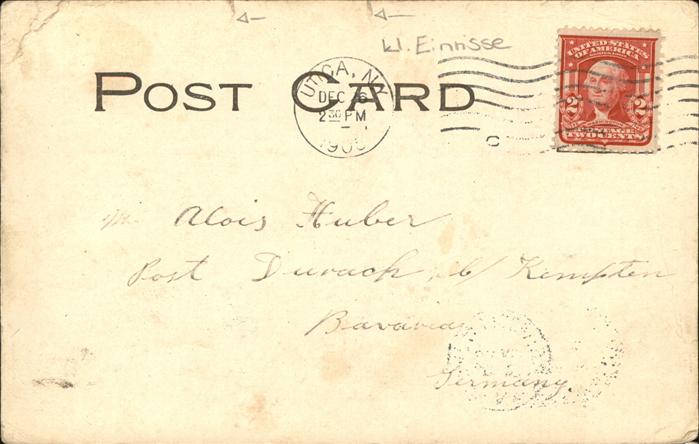 kl. Einrisse
POST CARD
UTICA, N.Y.
DEC 6
2 30 PM
UNITED STATES
OF AMERICA
2 2
POSTAGE
TWO CENTS
C
Alois Huber
Post Durach b/ Kempten
Bavaria
Germany.